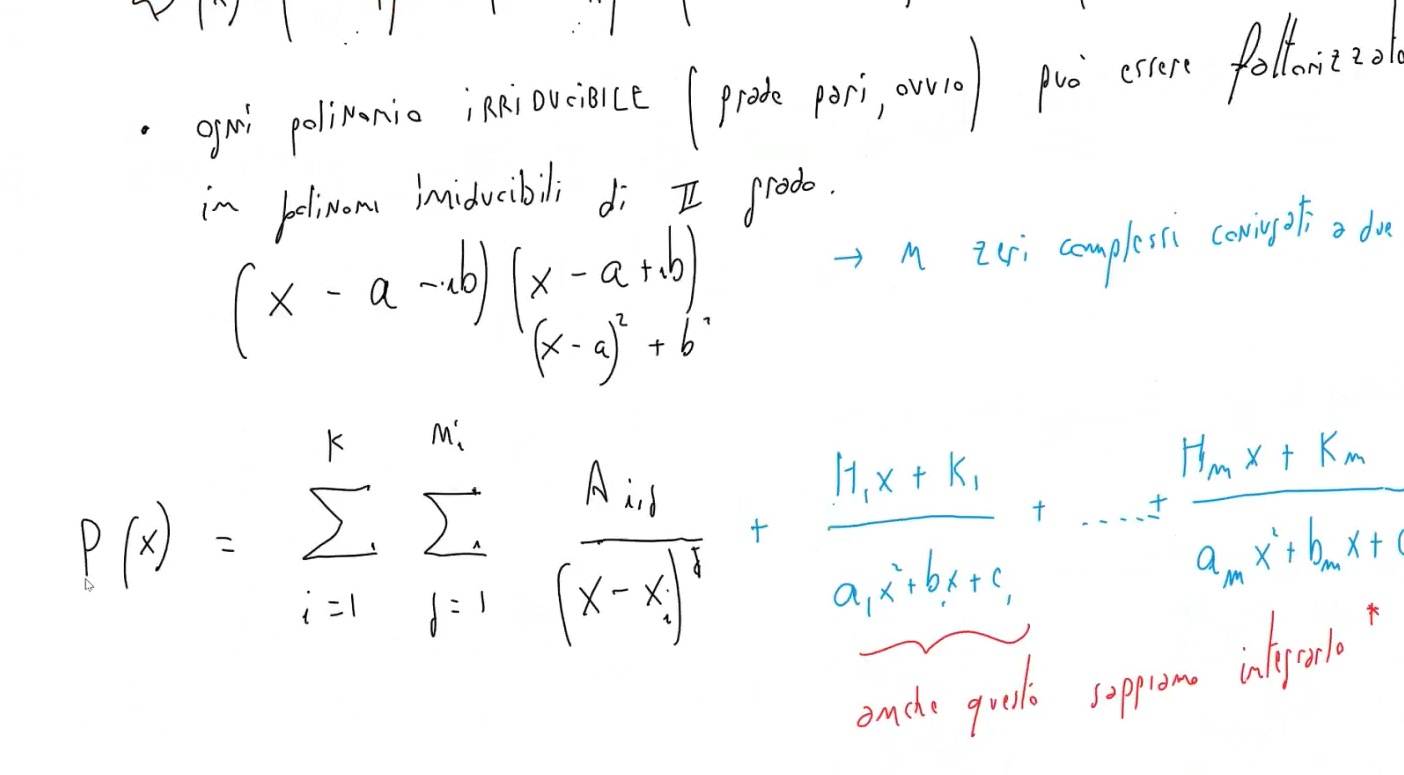 • ogni polinomio iRRiDUCiBILE (grado pari, ovvio) può essere fattorizzato
in polinomi irriducibili di II grado.
→ m zeri complessi coniugati a due
(x - a - ib) (x - a + ib)
(x - a)² + b²
P(x) = Σ_{i=1}^{K} Σ_{j=1}^{m_i} A_{i,j} / (x - x_i)^j + (H₁x + K₁) / (a₁x² + b₁x + c₁) + ..... + (H_m x + K_m) / (a_m x² + b_m x + c
anche questo sappiamo integrarlo *